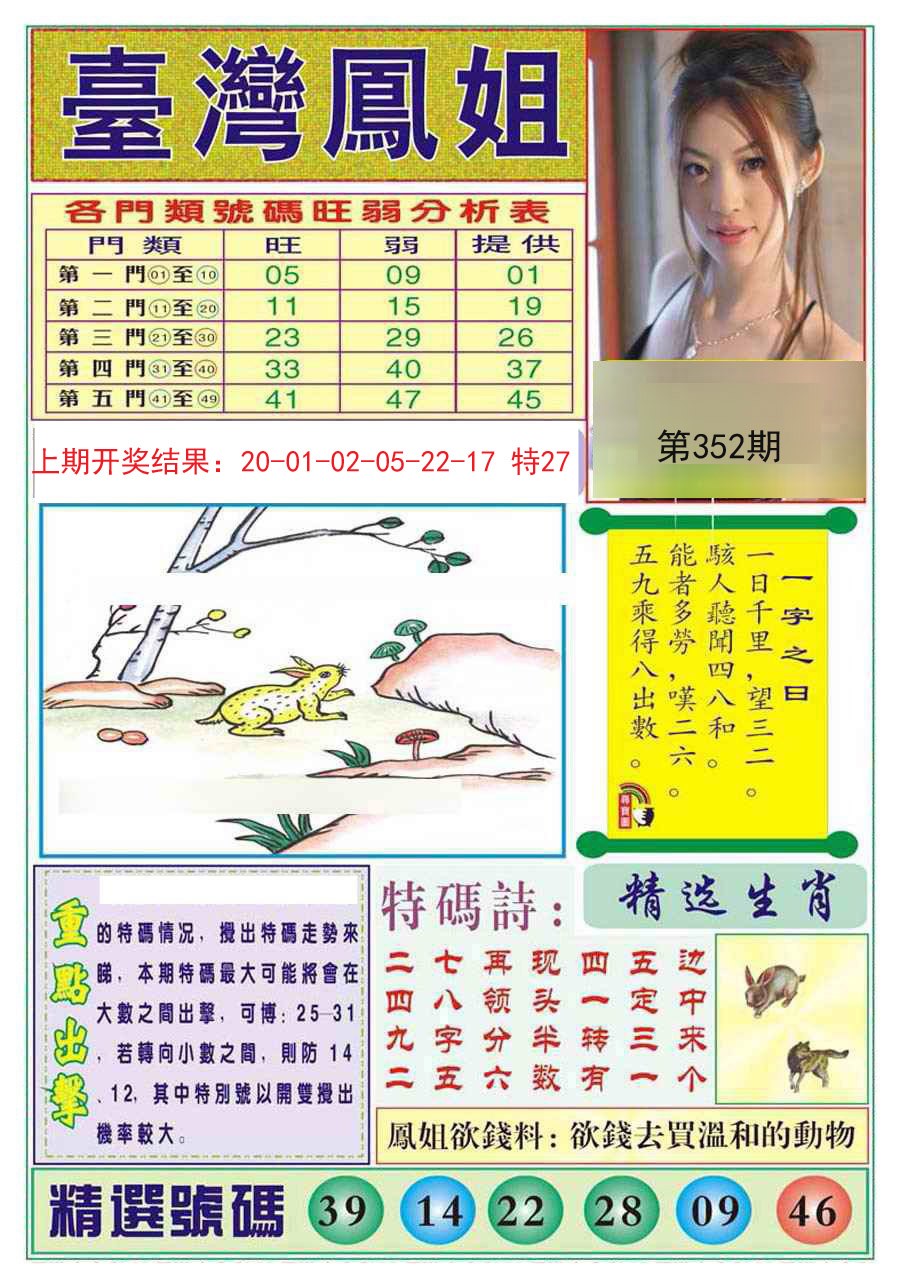 臺灣鳳姐
各門類號碼旺弱分析表
門類 旺 弱 提供
第一門01至10 05 09 01
第二門11至20 11 15 19
第三門21至30 23 29 26
第四門31至40 33 40 37
第五門41至49 41 47 45
上期开奖结果：20-01-02-05-22-17 特27
第352期
一字之曰
一日千里，望三二。
駭人聽聞四八和。
能者多勞，嘆二六。
五九乘得八出數。
尋寶圖
重點出擊
的特碼情况，攪出特碼走勢來
睇，本期特碼最大可能將會在
大數之間出擊，可博：25—31
，若轉向小數之間，則防 14
、12，其中特別號以開雙攪出
機率較大。
特碼詩：
二七再现四五边
四八领头一定中
九字分半转三来
二五六数有一个
精选生肖
鳳姐欲錢料：欲錢去買溫和的動物
精選號碼 39 14 22 28 09 46